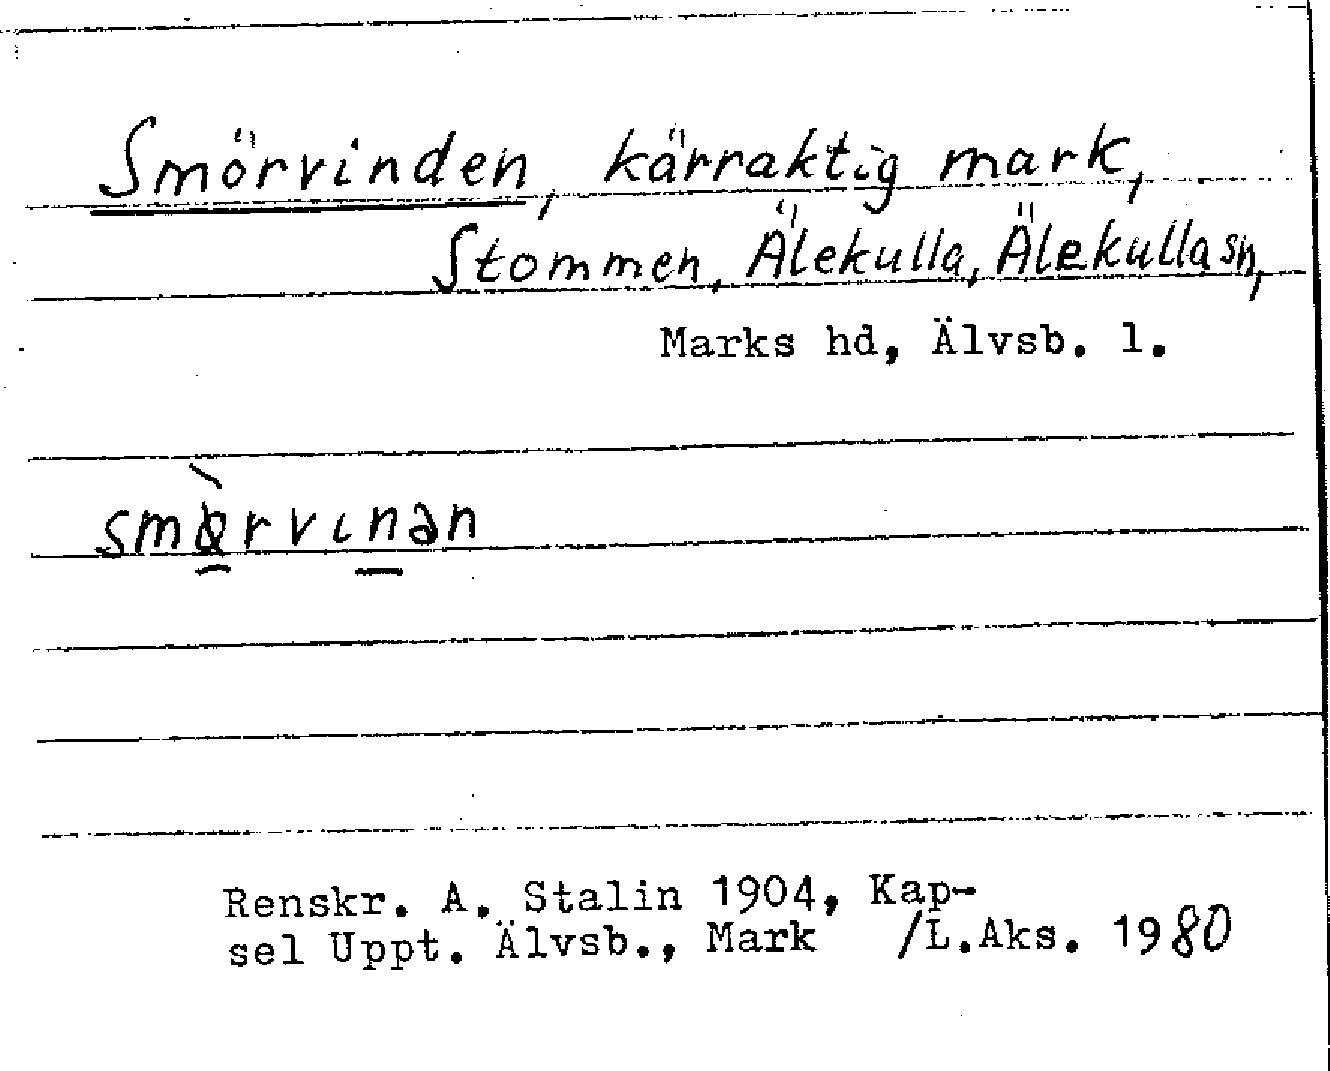 Smörvinden, kärraktig mark,
Stommen, Älekulla, Älekulla sn,
Marks hd, Älvsb. l.
smòrvınən
Renskr. A. Stalin 1904, Kap-
sel Uppt. Älvsb., Mark /L.Aks. 1980